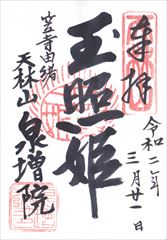 奉拝
令和二年
三月廿一日
玉照姫
笠寺由緒
天林山泉増院